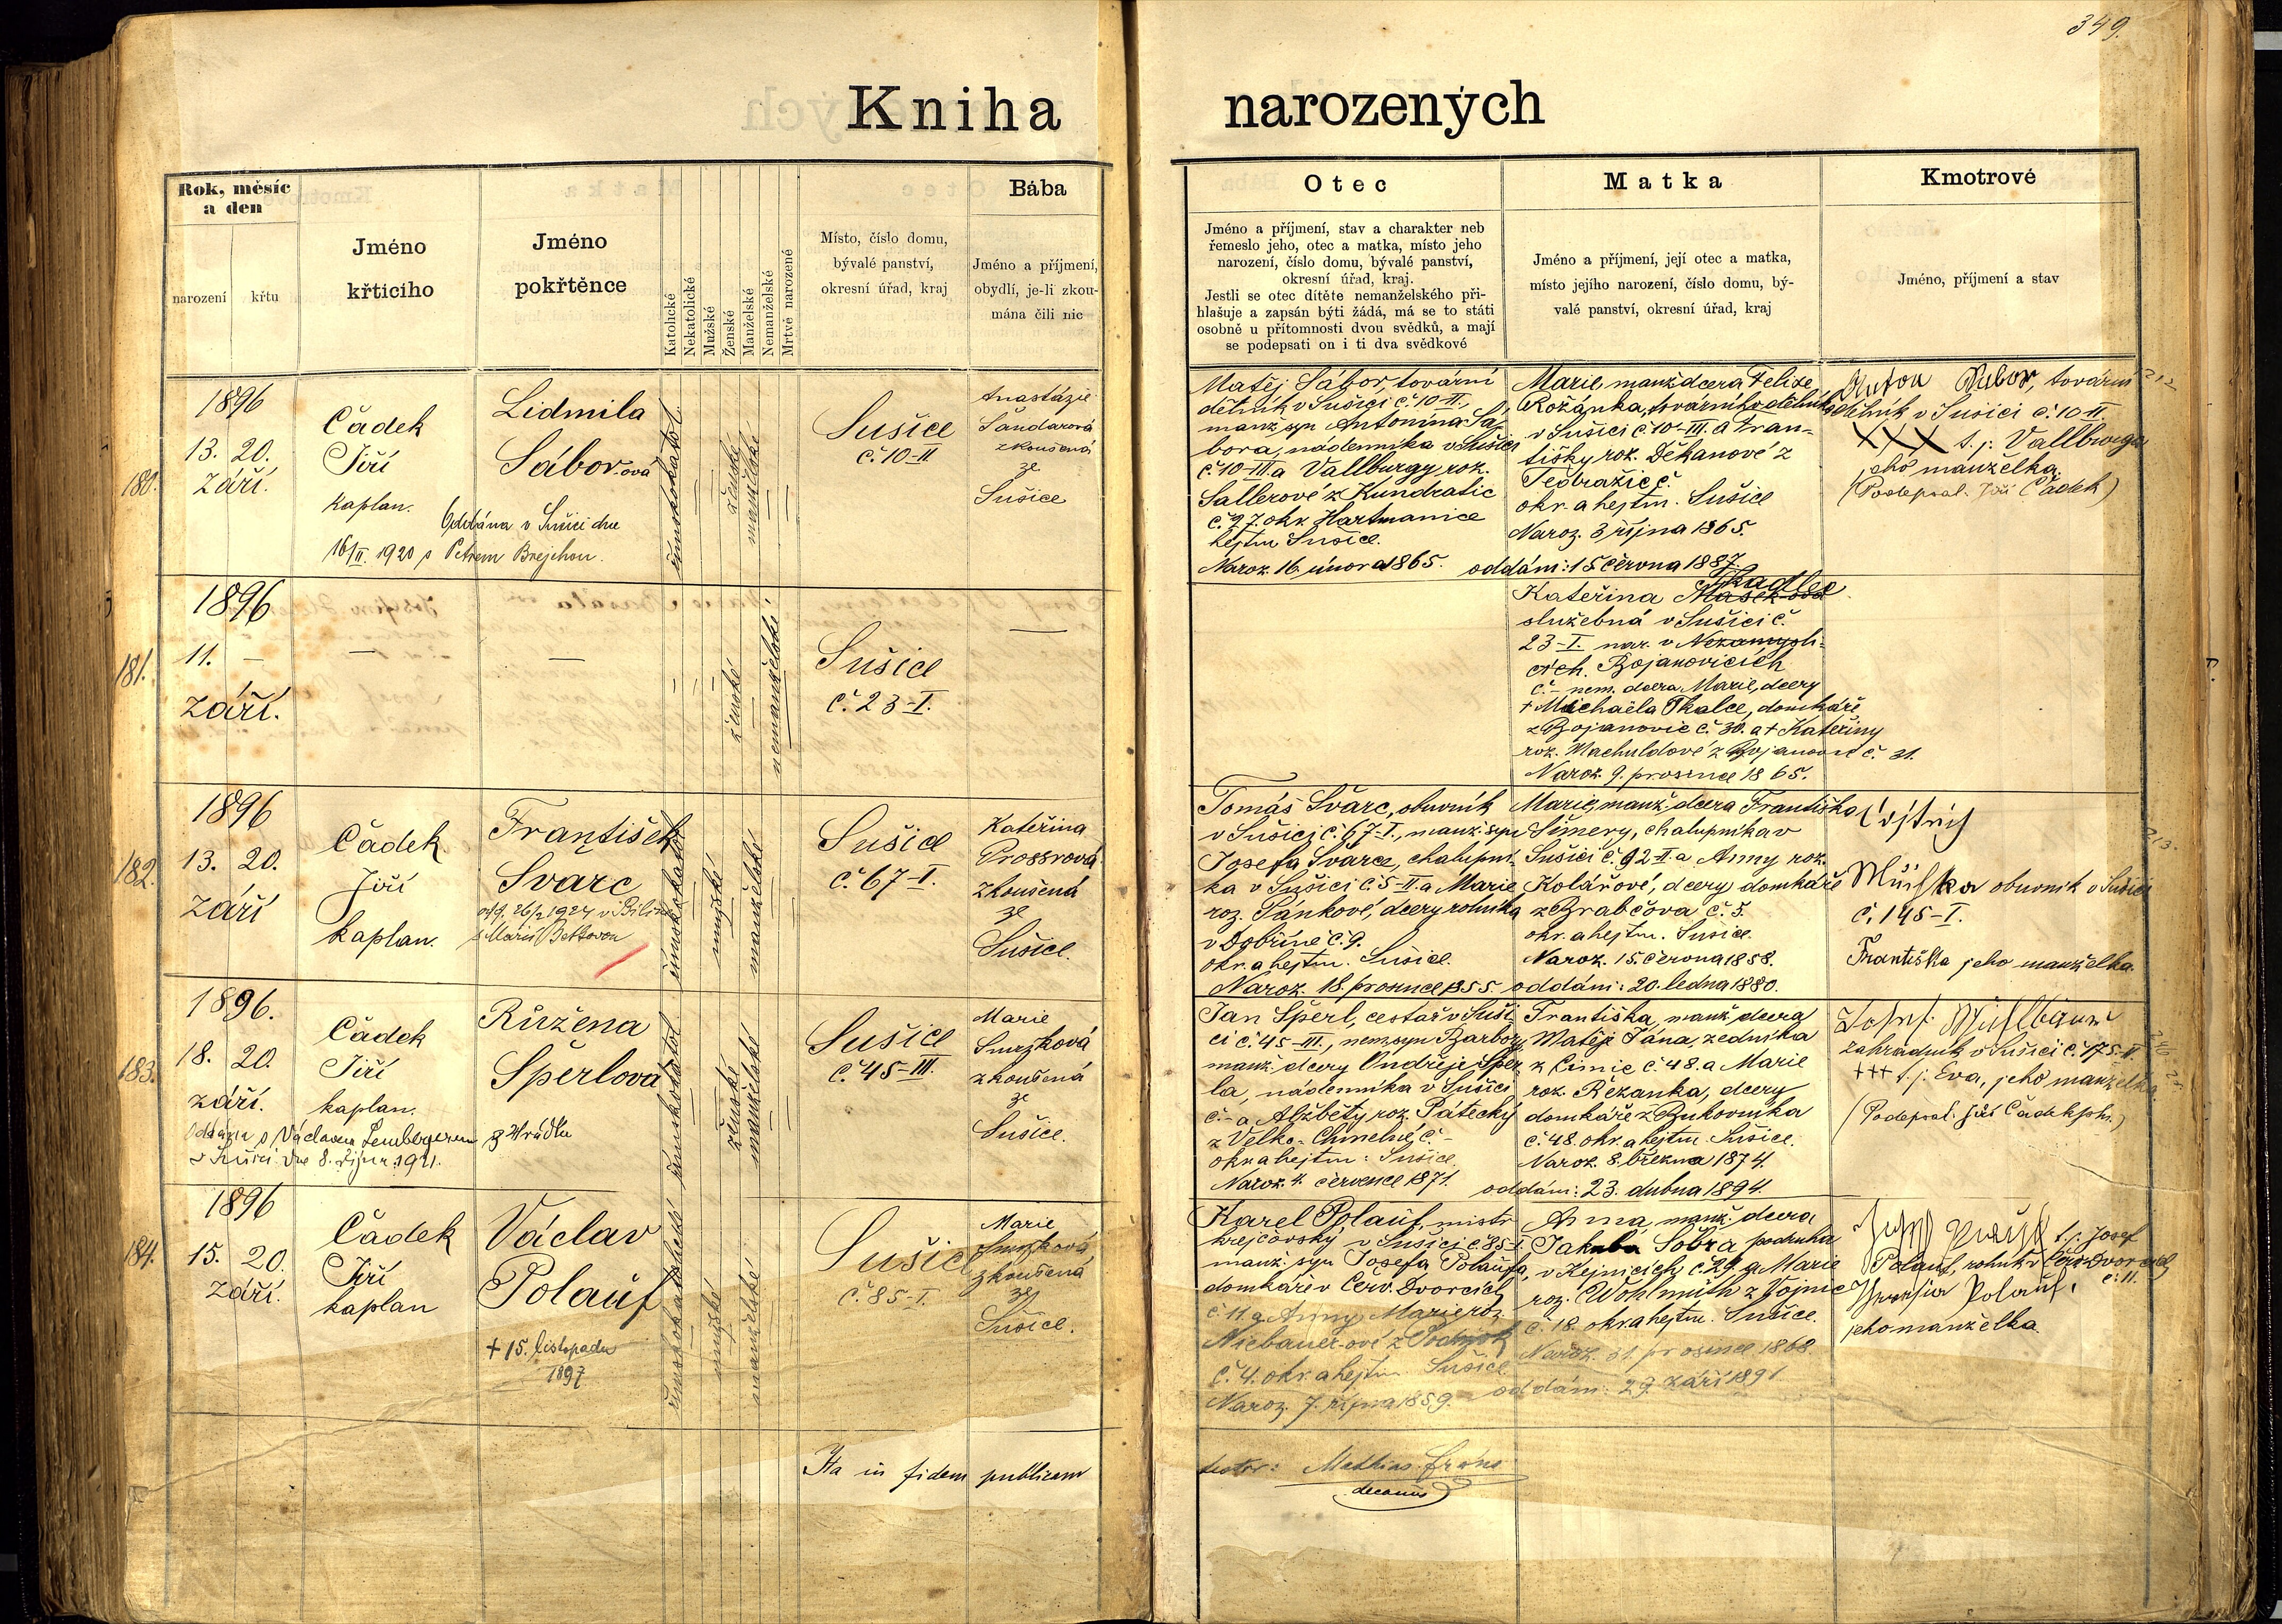 349.
Kniha narozených
Rok, měsíc
a den
narození
křtu
Jméno
křticího
Jméno
pokřtěnce
Katolické
Nekatolické
Mužské
Ženské
Manželské
Nemanželské
Mrtvě narozené
Místo, číslo domu,
bývalé panství,
okresní úřad, kraj
Bába
Jméno a příjmení,
obydlí, je-li zkou-
mána čili nic
Otec
Jméno a příjmení, stav a charakter neb
řemeslo jeho, otec a matka, místo jeho
narození, číslo domu, bývalé panství,
okresní úřad, kraj.
Jestli se otec dítěte nemanželského při-
hlašuje a zapsán býti žádá, má se to státi
osobně u přítomnosti dvou svědků, a mají
se podepsati on i ti dva svědkové
Matka
Jméno a příjmení, její otec a matka,
místo jejího narození, číslo domu, bý-
valé panství, okresní úřad, kraj
Kmotrové
Jméno, příjmení a stav
180.
1896
13. 20.
září.
Čádek
Jiří
kaplan.
Lidmila
Sábor-ová
Oddána v Sušici dne
16/II. 1920 s Petrem Brejchou.
římskokatol.
ženské
manželské
Sušice
č. 10-II
Anastázie
Šandarová
zkoušená
ze
Sušice
Matěj Sábor, tovární
dělník v Sušici č. 10-II.,
manž. syn Antonína Sá-
bora, nádenníka v Sušici
č. 10-III. a Vallburgy roz.
Sallerové z Kundratic
č. 27. okr. Hartmanice
hejtm Sušice.
Naroz. 16. února 1865.
Marie, manž. dcera Felixe
Rožánka, továrního dělníka
v Sušici č. 10-III. a Fran-
tišky roz. Děkanové z
Těšbražic č.
okr. a hejtm. Sušice
Naroz. 3 října 1865.
oddáni: 15 června 1887.
Anton Sábor, tovární
dělník v Sušici č. 10 II.
XXX t. j. Vallburga
jeho manželka.
(Podepsal: Jiří Čádek)
212
181.
1896
11. –
září.
–
–
ženské
nemanželské
Sušice
č. 23-I.
–
Kateřina Mašek-ová
Tkadlec
služebná v Sušici č.
23-I. nar. v Nezamysli-
cích. Bojanovicích
č. – nem. dcera Marie, dcery
+ Michaela Tkalce, domkáře
z Bojanovic č. 30. a + Kateřiny
roz. Machuldové z Bojanovic č. 31.
Naroz. 9. prosince 1865.
182.
1896
13. 20.
září
Čádek
Jiří
kaplan.
František
Švarc
1924 v Bílině
s Marií
římskokatol.
mužské
manželské
Sušice
č. 67-I.
Kateřina
Prossrová
zkoušená
ze
Sušice.
Tomáš Švarc, obuvník
v Sušici č. 67-I., manž. syn
Josefa Švarce, chalupní-
ka v Sušici č. 5-II. a Marie
roz. Pánkové, dcery rolníka
v Dobříně č. 9.
okr. a hejtm. Sušice.
Naroz. 18. prosince 1855.
Marie, manž. dcera Františka
Šimery, chalupníka v
Sušici č. 92-II. a Anny roz.
Kolářové, dcery domkáře
z Brabčova č. 5.
okr. a hejtm. Sušice.
Naroz. 15. června 1858.
oddáni: 20. ledna 1880.
obuvník v Sušici
č. 145-I.
Františka jeho manželka.
213.
183.
1896.
18. 20.
září.
Čádek
Jiří
kaplan.
Růžena
Šperlová
Oddána s Václavem Lembergerem z Hrádku
v Sušici dne 8. října 1921.
římskokatol.
ženské
manželské
Sušice
č. 45-III.
Marie
Smrzková
zkoušená
ze
Sušice.
Jan Šperl, cestář v Suši-
ci č. 45-III., nem. syn Barbory
manž. dcery Ondřeje Šper-
la, nádenníka v Sušici
č. – a Alžběty roz. Pátecký
z Velko-Chmelné č. –
okr. a hejtm: Sušice.
Naroz. 4. července 1871.
Františka, manž. dcera
Matěje Pána, zedníka
z Čimic č. 48. a Marie
roz. Řezanka, dcery
domkáře z Bukovníka
č. 48. okr. a hejtm. Sušice.
Naroz. 8. března 1874.
oddáni: 23. dubna 1894.
Josef Mühlbauer
zahradník v Sušici č. 175-II.
+++ t. j. Eva, jeho manželka
(Podepsal: Jiří Čádek)
184.
1896
15. 20.
září.
Čádek
Jiří
kaplan
Václav
Polauf
+ 15. listopadu
1897
římskokatolické
mužské
manželské
Sušice
č. 85-I.
Marie
Smrzková
zkoušená
ze
Sušice.
Karel Polauf, mistr
krejčovský v Sušici č. 85-I.
manž. syn Josefa Polaufa,
domkáře v Červ. Dvorcích
č. 11. a Anny Marie roz.
Niebauer-ové z
č. 4. okr. a hejtm. Sušice
Naroz. 7. října 1859.
Anna, manž. dcera
Jakuba Sobra podruha
v Kejnicích č. 29. a Marie
roz. Wohlmuth z Vojnic
č. 18. okr. a hejtm. Sušice.
Naroz. 31. prosince 1868.
oddáni: 29. září 1891
t. j. Josef
Polauf, rolník v Červ. Dvorcích
č. 11.
Polauf,
jeho manželka.
Ita in fidem publicam
testor: Mathias
decanus